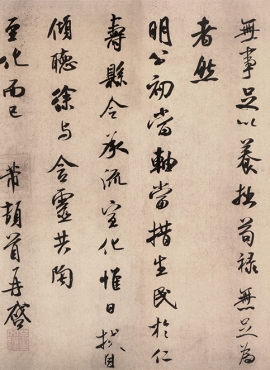 無事足以養拙苟祿無足為
者然
明公初當軸當措生民於仁
壽縣令承流宣化惟日拭目
傾聽徐与含靈共陶
至化而已 芾頓首再啓